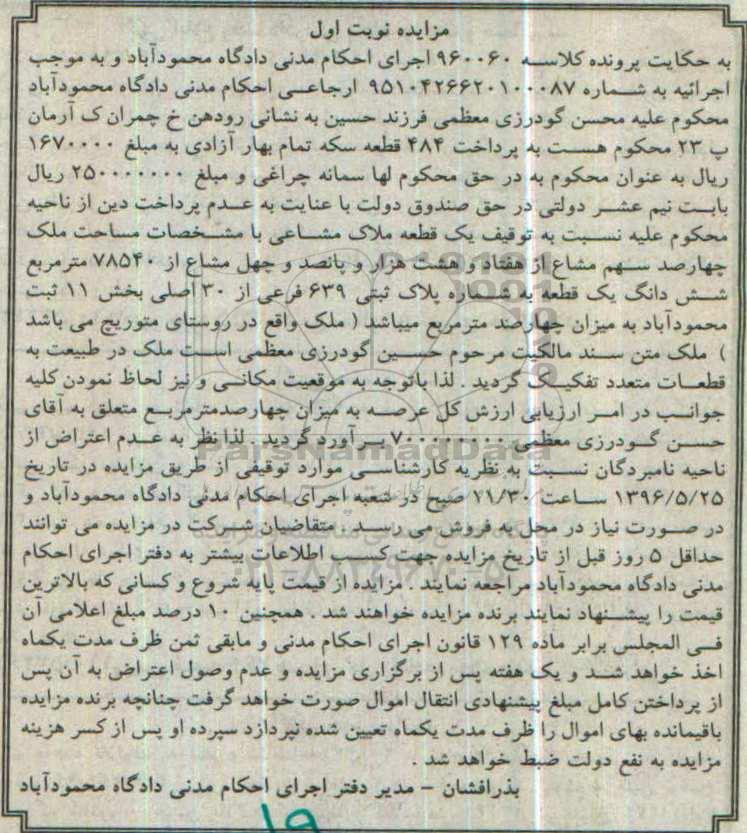 مزایده نوبت اول
به حکایت پرونده کلاسه ۹۶۰۰۶۰ اجرای احکام مدنی دادگاه محمودآباد و به موجب
اجرائیه به شماره ۹۵۱۰۴۲۶۶۲۰۱۰۰۰۸۷ ارجاعی احکام مدنی دادگاه محمودآباد
محکوم علیه محسن گودرزی معظمی فرزند حسین به نشانی رودهن خ چمران ک آرمان
پ ۲۳ محکوم هست به پرداخت ۴۸۴ قطعه سکه تمام بهار آزادی به مبلغ ۱۶۷۰۰۰۰
ریال به عنوان محکوم به در حق محکوم لها سمانه چراغی و مبلغ ۲۵۰۰۰۰۰۰۰ ریال
بابت نیم عشر دولتی در حق صندوق دولت با عنایت به عدم پرداخت دین از ناحیه
محکوم علیه نسبت به توقیف یک قطعه ملاک مشاعی با مشخصات مساحت ملک
چهارصد سهم مشاع از هفتاد و هشت هزار و پانصد و چهل مشاع از ۷۸۵۴۰ مترمربع
شش دانگ یک قطعه به شماره پلاک ثبتی ۶۳۹ فرعی از ۳۰ اصلی بخش ۱۱ ثبت
محمودآباد به میزان چهارصد مترمربع میباشد ( ملک واقع در روستای متوریج می باشد
) ملک متن سند مالکیت مرحوم حسین گودرزی معظمی است ملک در طبیعت به
قطعات متعدد تفکیک گردید . لذا باتوجه به موقعیت مکانی و نیز لحاظ نمودن کلیه
جوانب در امر ارزیابی ارزش کل عرصه به میزان چهارصدمترمربع متعلق به آقای
حسن گودرزی معظمی ۷۰۰۰۰۰۰۰۰ برآورد گردید . لذا نظر به عدم اعتراض از
ناحیه نامبردگان نسبت به نظریه کارشناسی موارد توقیفی از طریق مزایده در تاریخ
۱۳۹۶/۵/۲۵ ساعت ۱۱/۳۰ صبح در شعبه اجرای احکام مدنی دادگاه محمودآباد و
در صورت نیاز در محل به فروش می رسد . متقاضیان شرکت در مزایده می توانند
حداقل ۵ روز قبل از تاریخ مزایده جهت کسب اطلاعات بیشتر به دفتر اجرای احکام
مدنی دادگاه محمودآباد مراجعه نمایند . مزایده از قیمت پایه شروع و کسانی که بالاترین
قیمت را پیشنهاد نمایند برنده مزایده خواهند شد . همچنین ۱۰ درصد مبلغ اعلامی آن
فی المجلس برابر ماده ۱۲۹ قانون اجرای احکام مدنی و مابقی ثمن ظرف مدت یکماه
اخذ خواهد شد و یک هفته پس از برگزاری مزایده و عدم وصول اعتراض به آن پس
از پرداختن کامل مبلغ پیشنهادی انتقال اموال صورت خواهد گرفت چنانچه برنده مزایده
باقیمانده بهای اموال را ظرف مدت یکماه تعیین شده نپردازد سپرده او پس از کسر هزینه
مزایده به نفع دولت ضبط خواهد شد .
بذرافشان - مدیر دفتر اجرای احکام مدنی دادگاه محمودآباد
۱۹
ParsNamadData